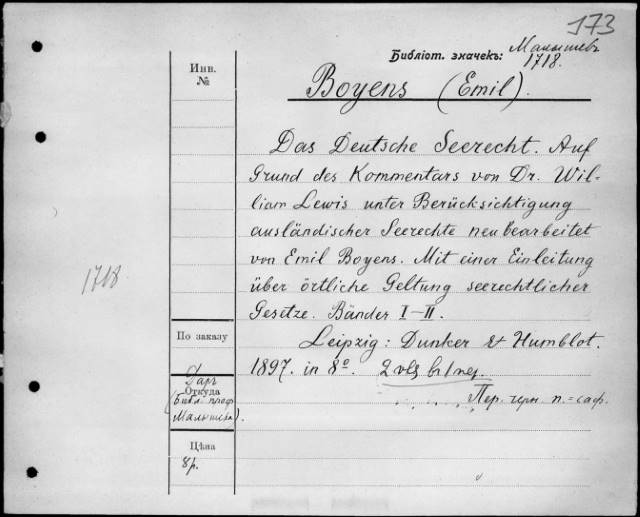 173
Библіот. значекъ: Малышевъ
1718.
Инв.
№
Boyens (Emil).
Das Deutsche Seerecht. Auf
Grund des Kommentars von Dr. Wil-
liam Lewis unter Berücksichtigung
ausländischer Seerechte neu bearbeitet
von Emil Boyens. Mit einer Einleitung
über örtliche Geltung seerechtlicher
Gesetze. Bänder I-II.
1718
По заказу
Leipzig: Dunker & Humblot.
1897. in 8º. 2 vls
Даръ
Откуда
(Библ. проф.
Малышева).
Пер. черн. п.=саф.
Цѣна
8р.